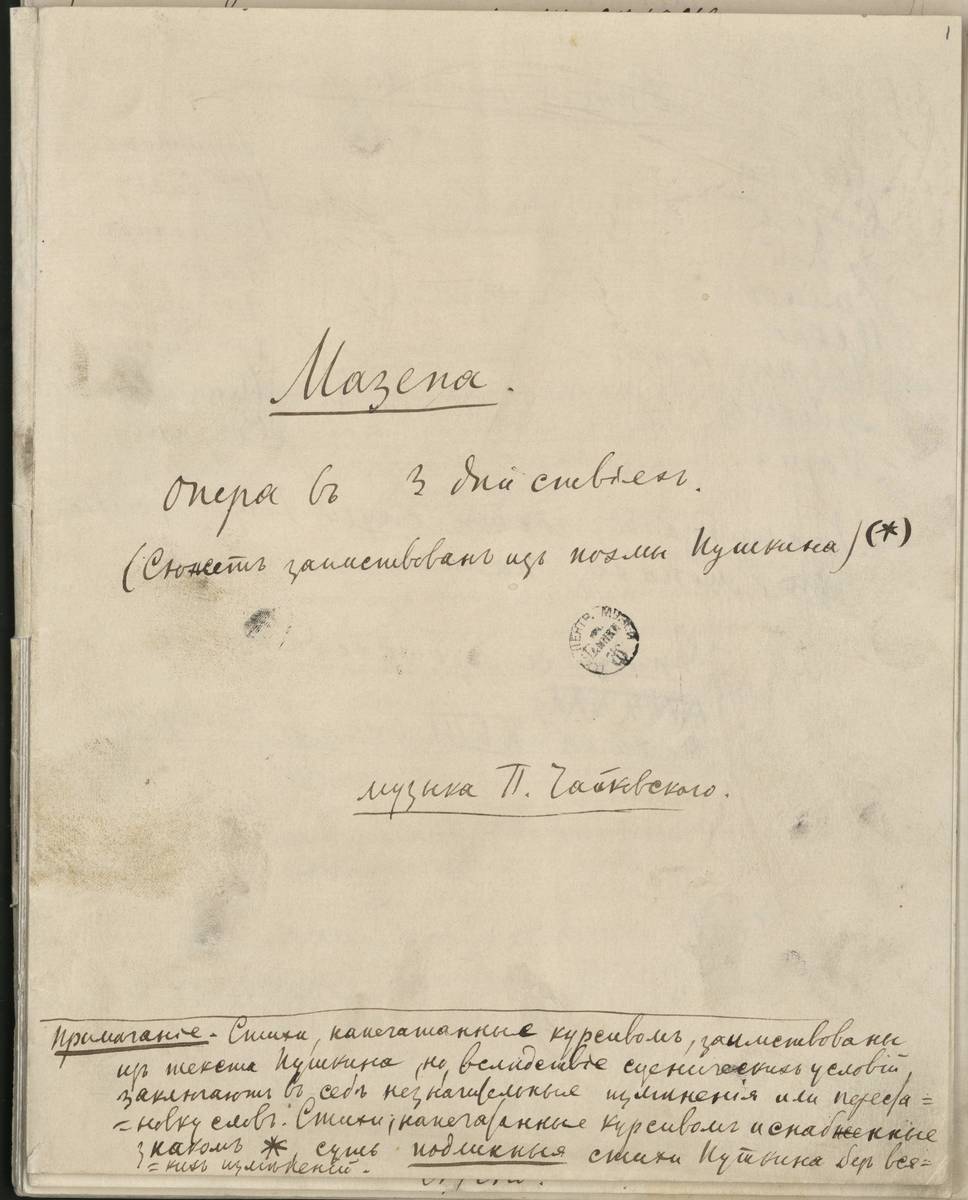 1
Мазепа.
Опера въ 3 дѣйствіяхъ.
(Сюжетъ заимствованъ изъ поэмы Пушкина) (*)
ЦЕНТР. МУЗЕЙ
музыка П. Чайковскаго.
Примѣчаніе. Стихи, напечатанные курсивомъ, заимствованы
изъ текста Пушкина, но, вслѣдствіе сценическихъ условій,
заключаютъ въ себѣ незначительныя измѣненія или переста=
=новку словъ. Стихи, напечатанные курсивомъ и снабженные
знакомъ *, суть подлинныя стихи Пушкина безъ вся=
=кихъ измѣненій.